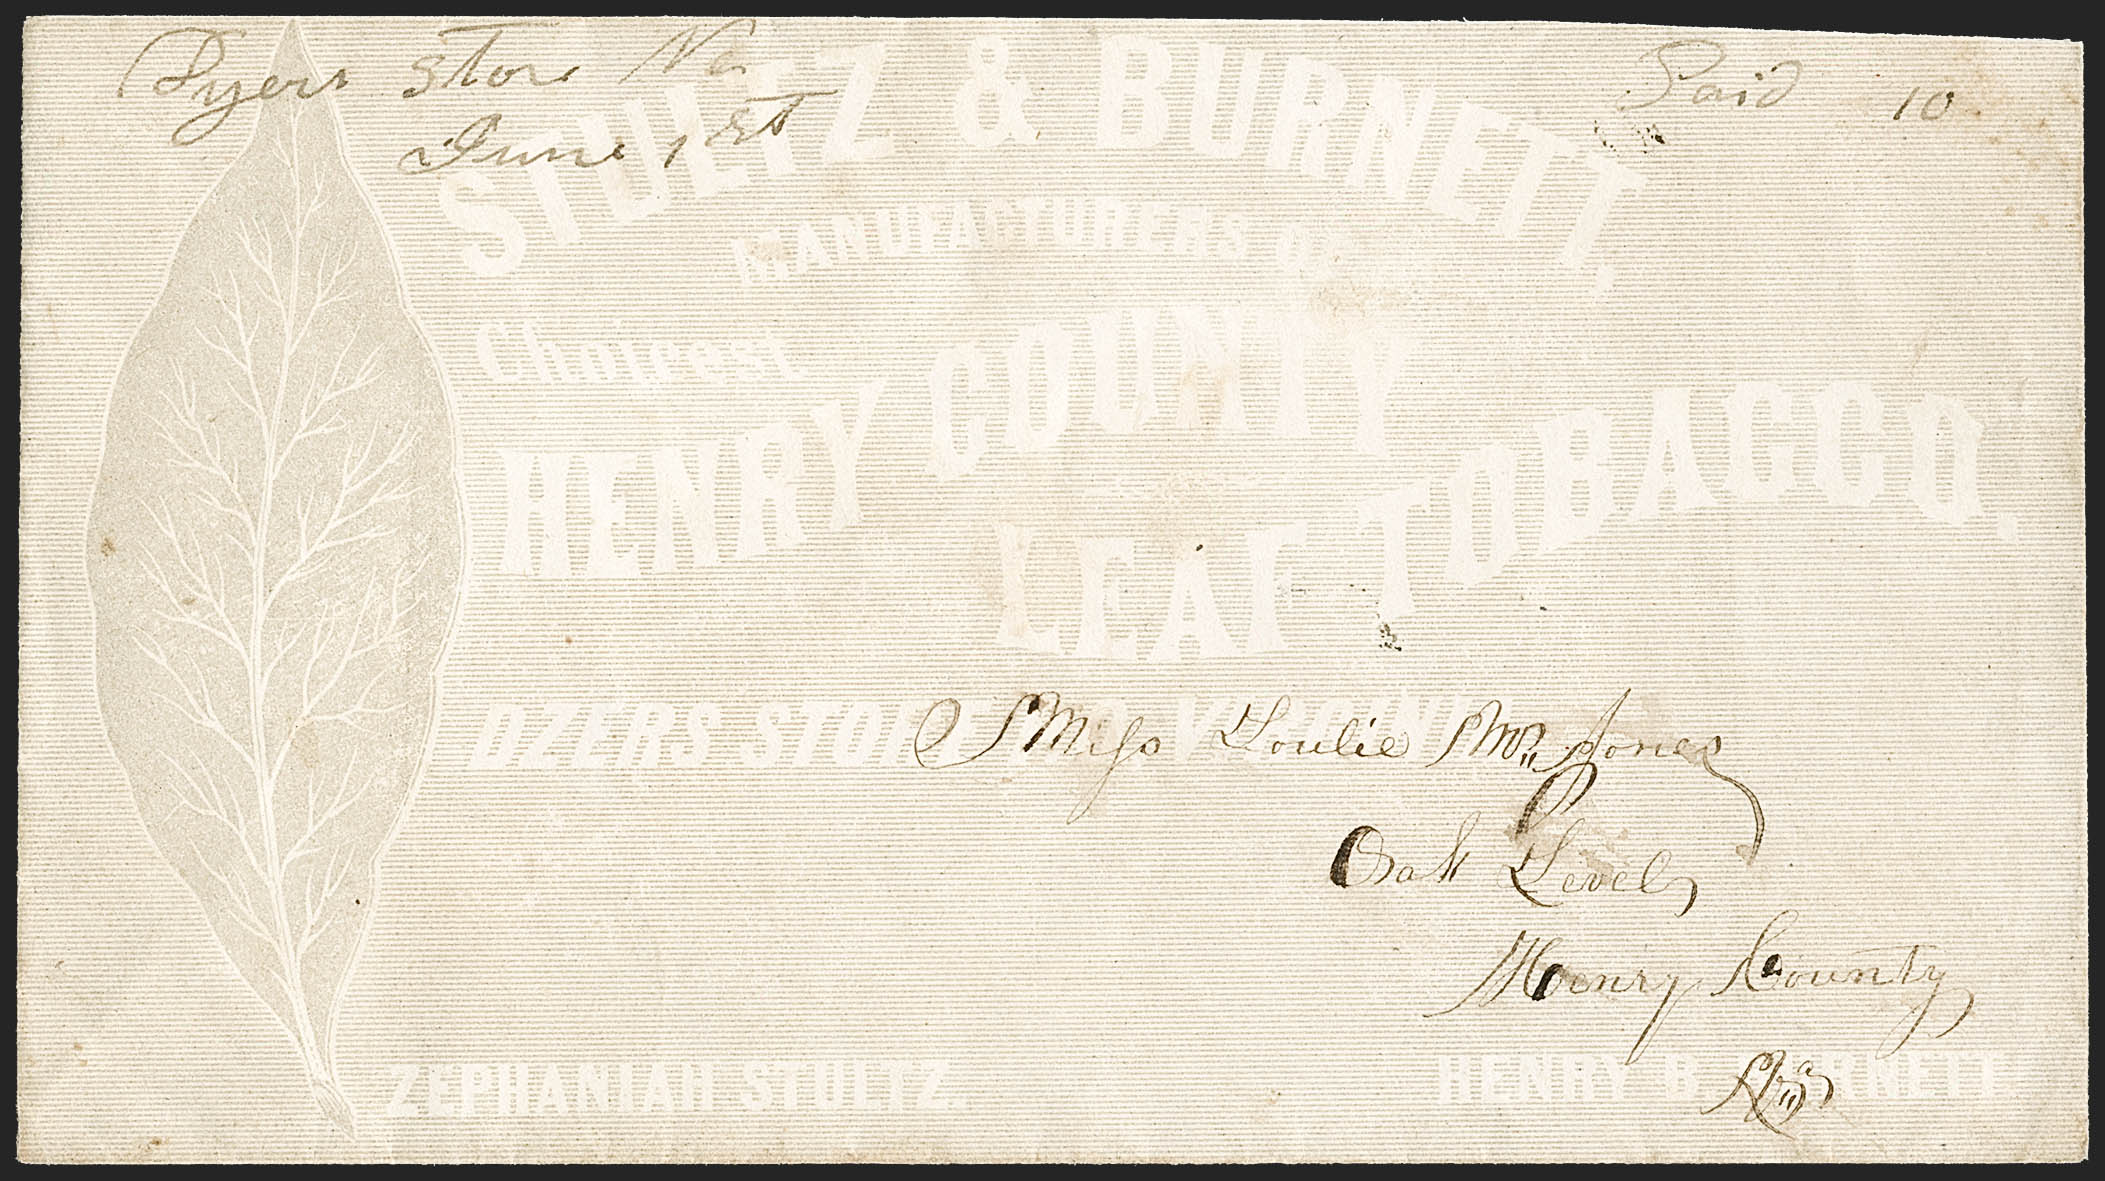 Dyers Store Va
June 1st
Paid 10
STULTZ & BURNETT,
MANUFACTURERS OF
Choicest
HENRY COUNTY
LEAF TOBACCO.
DZERS STORE
Miss Loulie M. Jones
Oak Level,
Henry County,
Va
ZEPHANIAH STULTZ.
HENRY B. BURNETT.